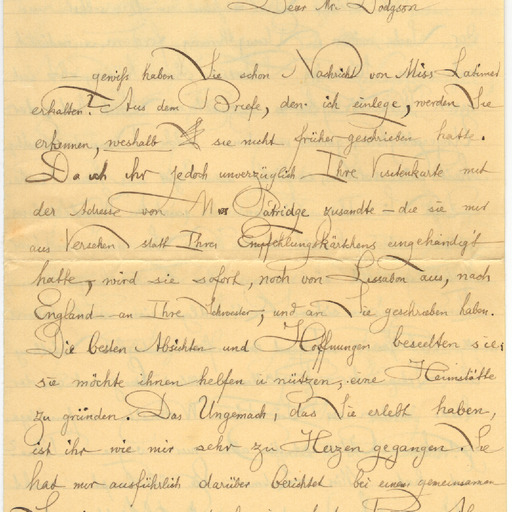 Dear Mr. Dodgson
– gewiß haben Sie schon Nachricht von Miss Latimer
erhalten? Aus dem Briefe, den ich einlege, werden Sie
erkennen, weshalb sie nicht früher geschrieben hatte.
Da ich ihr jedoch unverzüglich Ihre Visitenkarte mit
der Adresse von Mrs Patridge zusandte – die sie mir
aus Versehen statt Ihres Empfehlungskärtchens eingehändigt
hatte, wird sie sofort, noch von Lissabon aus, nach
England – an Ihre Schwester, und an Sie geschrieben haben.
Die besten Absichten und Hoffnungen beseelten sie;
sie möchte ihnen helfen u nützen, eine Heimstätte
zu gründen. Das Ungemach, das Sie erlebt haben,
ist ihr wie mir sehr zu Herzen gegangen. Sie
hat mir ausführlich darüber berichtet bei einem gemeinsamen